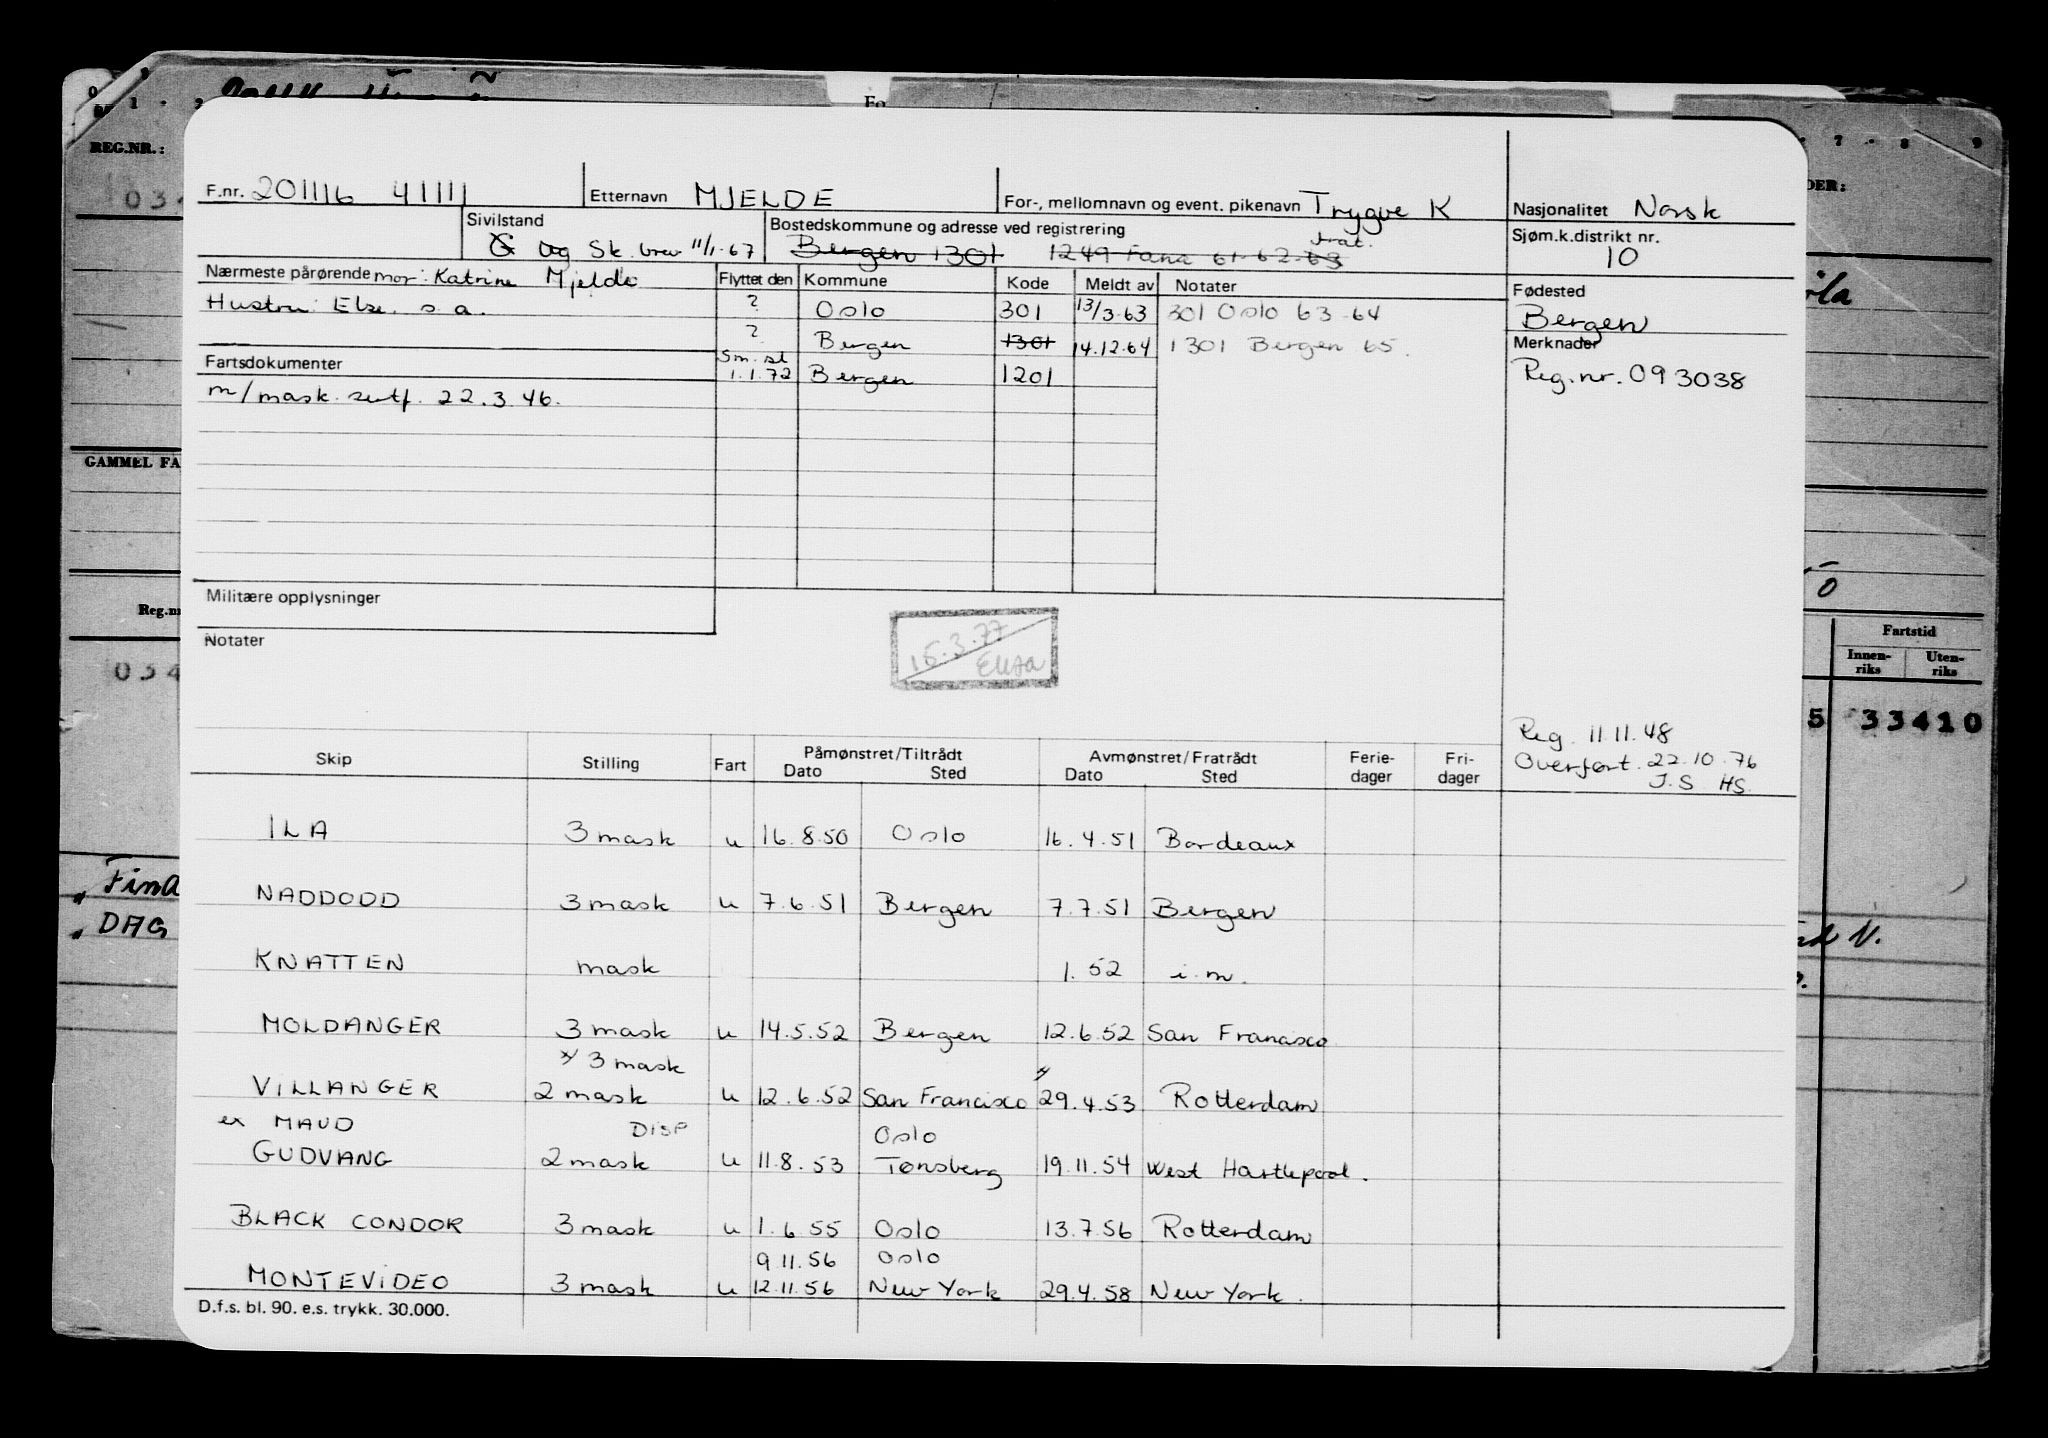 REG.NR.:
034
GAMMEL FA
Reg.n
034
Find
DAG
F.nr. 201116 41111 Etternavn MJELDE For-, mellomnavn og event. pikenavn Trygve K Nasjonalitet Norsk
Sivilstand Sk. brev 11/1-67 Bostedskommune og adresse ved registrering Bergen 1301 1249 Fana 61-62-63 Sjøm.k.distrikt nr. 10
Nærmeste pårørende mor: Katrine Mjelde Flyttet den Kommune Kode Meldt av Notater Fødested
Hustru: Else. s.a. ? Oslo 301 13/3-63 301 Oslo 63-64 Bergen
? Bergen 1301 14.12.64 1301 Bergen 65. Merknader
Fartsdokumenter Sm. st 1.1.72 Bergen 1201 Reg.nr. 093038
m/mask. sertf. 22.3.46.
Militære opplysninger
Notater
15.3.77
Reg. 11.11.48
Overført. 22.10.76
J.S HS
Skip Stilling Fart Påmønstret/Tiltrådt Avmønstret/Fratrådt Ferie-dager Fri-dager
Dato Sted Dato Sted
ILA 3 mask u 16.8.50 Oslo 16.4.51 Bordeaux
NADDODD 3 mask u 7.6.51 Bergen 7.7.51 Bergen
KNATTEN mask 1.52 i.m.
MOLDANGER 3 mask u 14.5.52 Bergen 12.6.52 San Francisco
x/ 3 mask
VILLANGER 2 mask u 12.6.52 San Francisco 29.4.53 Rotterdam
ex MAUD DISP Oslo
GUDVANG 2 mask u 11.8.53 Tønsberg 19.11.54 West Hartlepool.
BLACK CONDOR 3 mask u 1.6.55 Oslo 13.7.56 Rotterdam
9.11.56 Oslo
MONTEVIDEO 3 mask u 12.11.56 New York 29.4.58 New York.
D.f.s. bl. 90. e.s. trykk. 30.000.
DER:
Fartstid
Innen-riks Uten-riks
5 33410